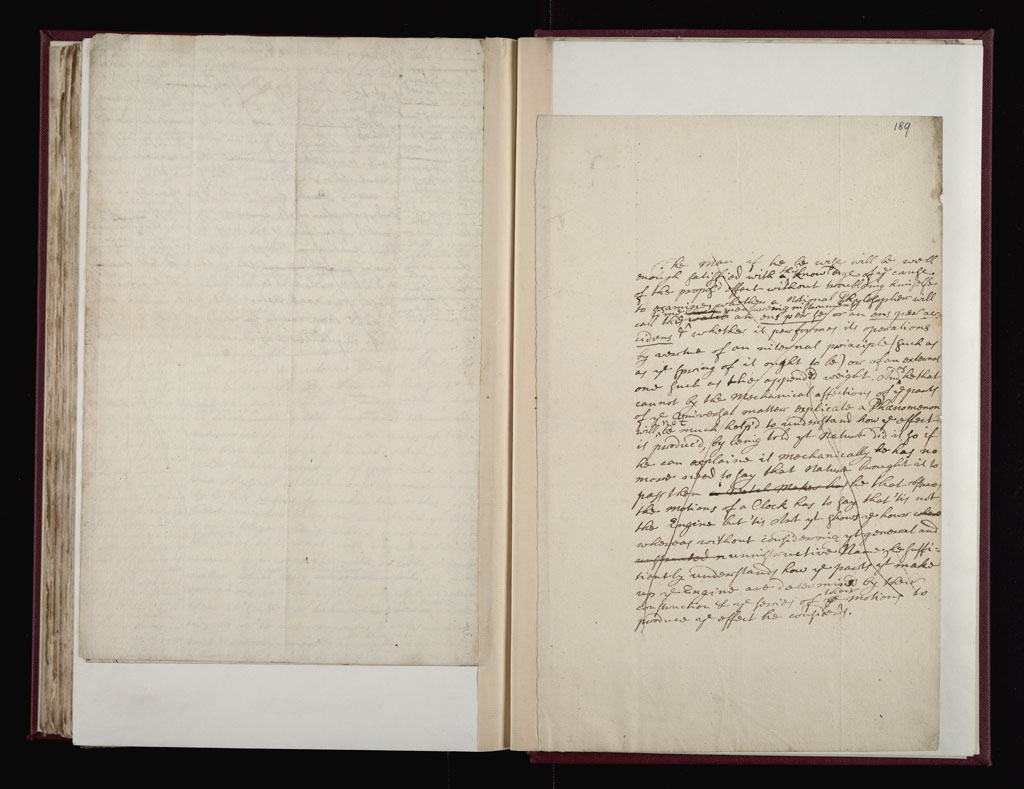 189
The man if he be wise will be well
enough satisfied with the knowledge of ye cause
of the propos'd effect without troubling himselfe
to examine whether a notional Philosopher will
call the an ens per se or an ens per ac-
cidens & whether it performes its operations
by vertue of an internal principle (such as
as ye spring of it ought to be) or of an external
one such as the append weight. And he that
cannot by the Mechanical affections of ye parts
of ye Universal matter explicate a Phænomenon
will not be much help'd to understand how ye effect
is produc'd, by being told yt Nature did it so if
he can explaine it mechanically he has no
more need to say that Nature brought it to
pass then a Watch Maker he that
the motions of a Clock has to say that 'tis not
the Engine but 'tis Art yt shows ye hour
whereas without considering yt general and
uninstructive Name he suffi-
tiently understands how ye parts yt make
up ye Engine are determin'd by their
construction & ye series of their ye motions to
produce ye effect he considers.